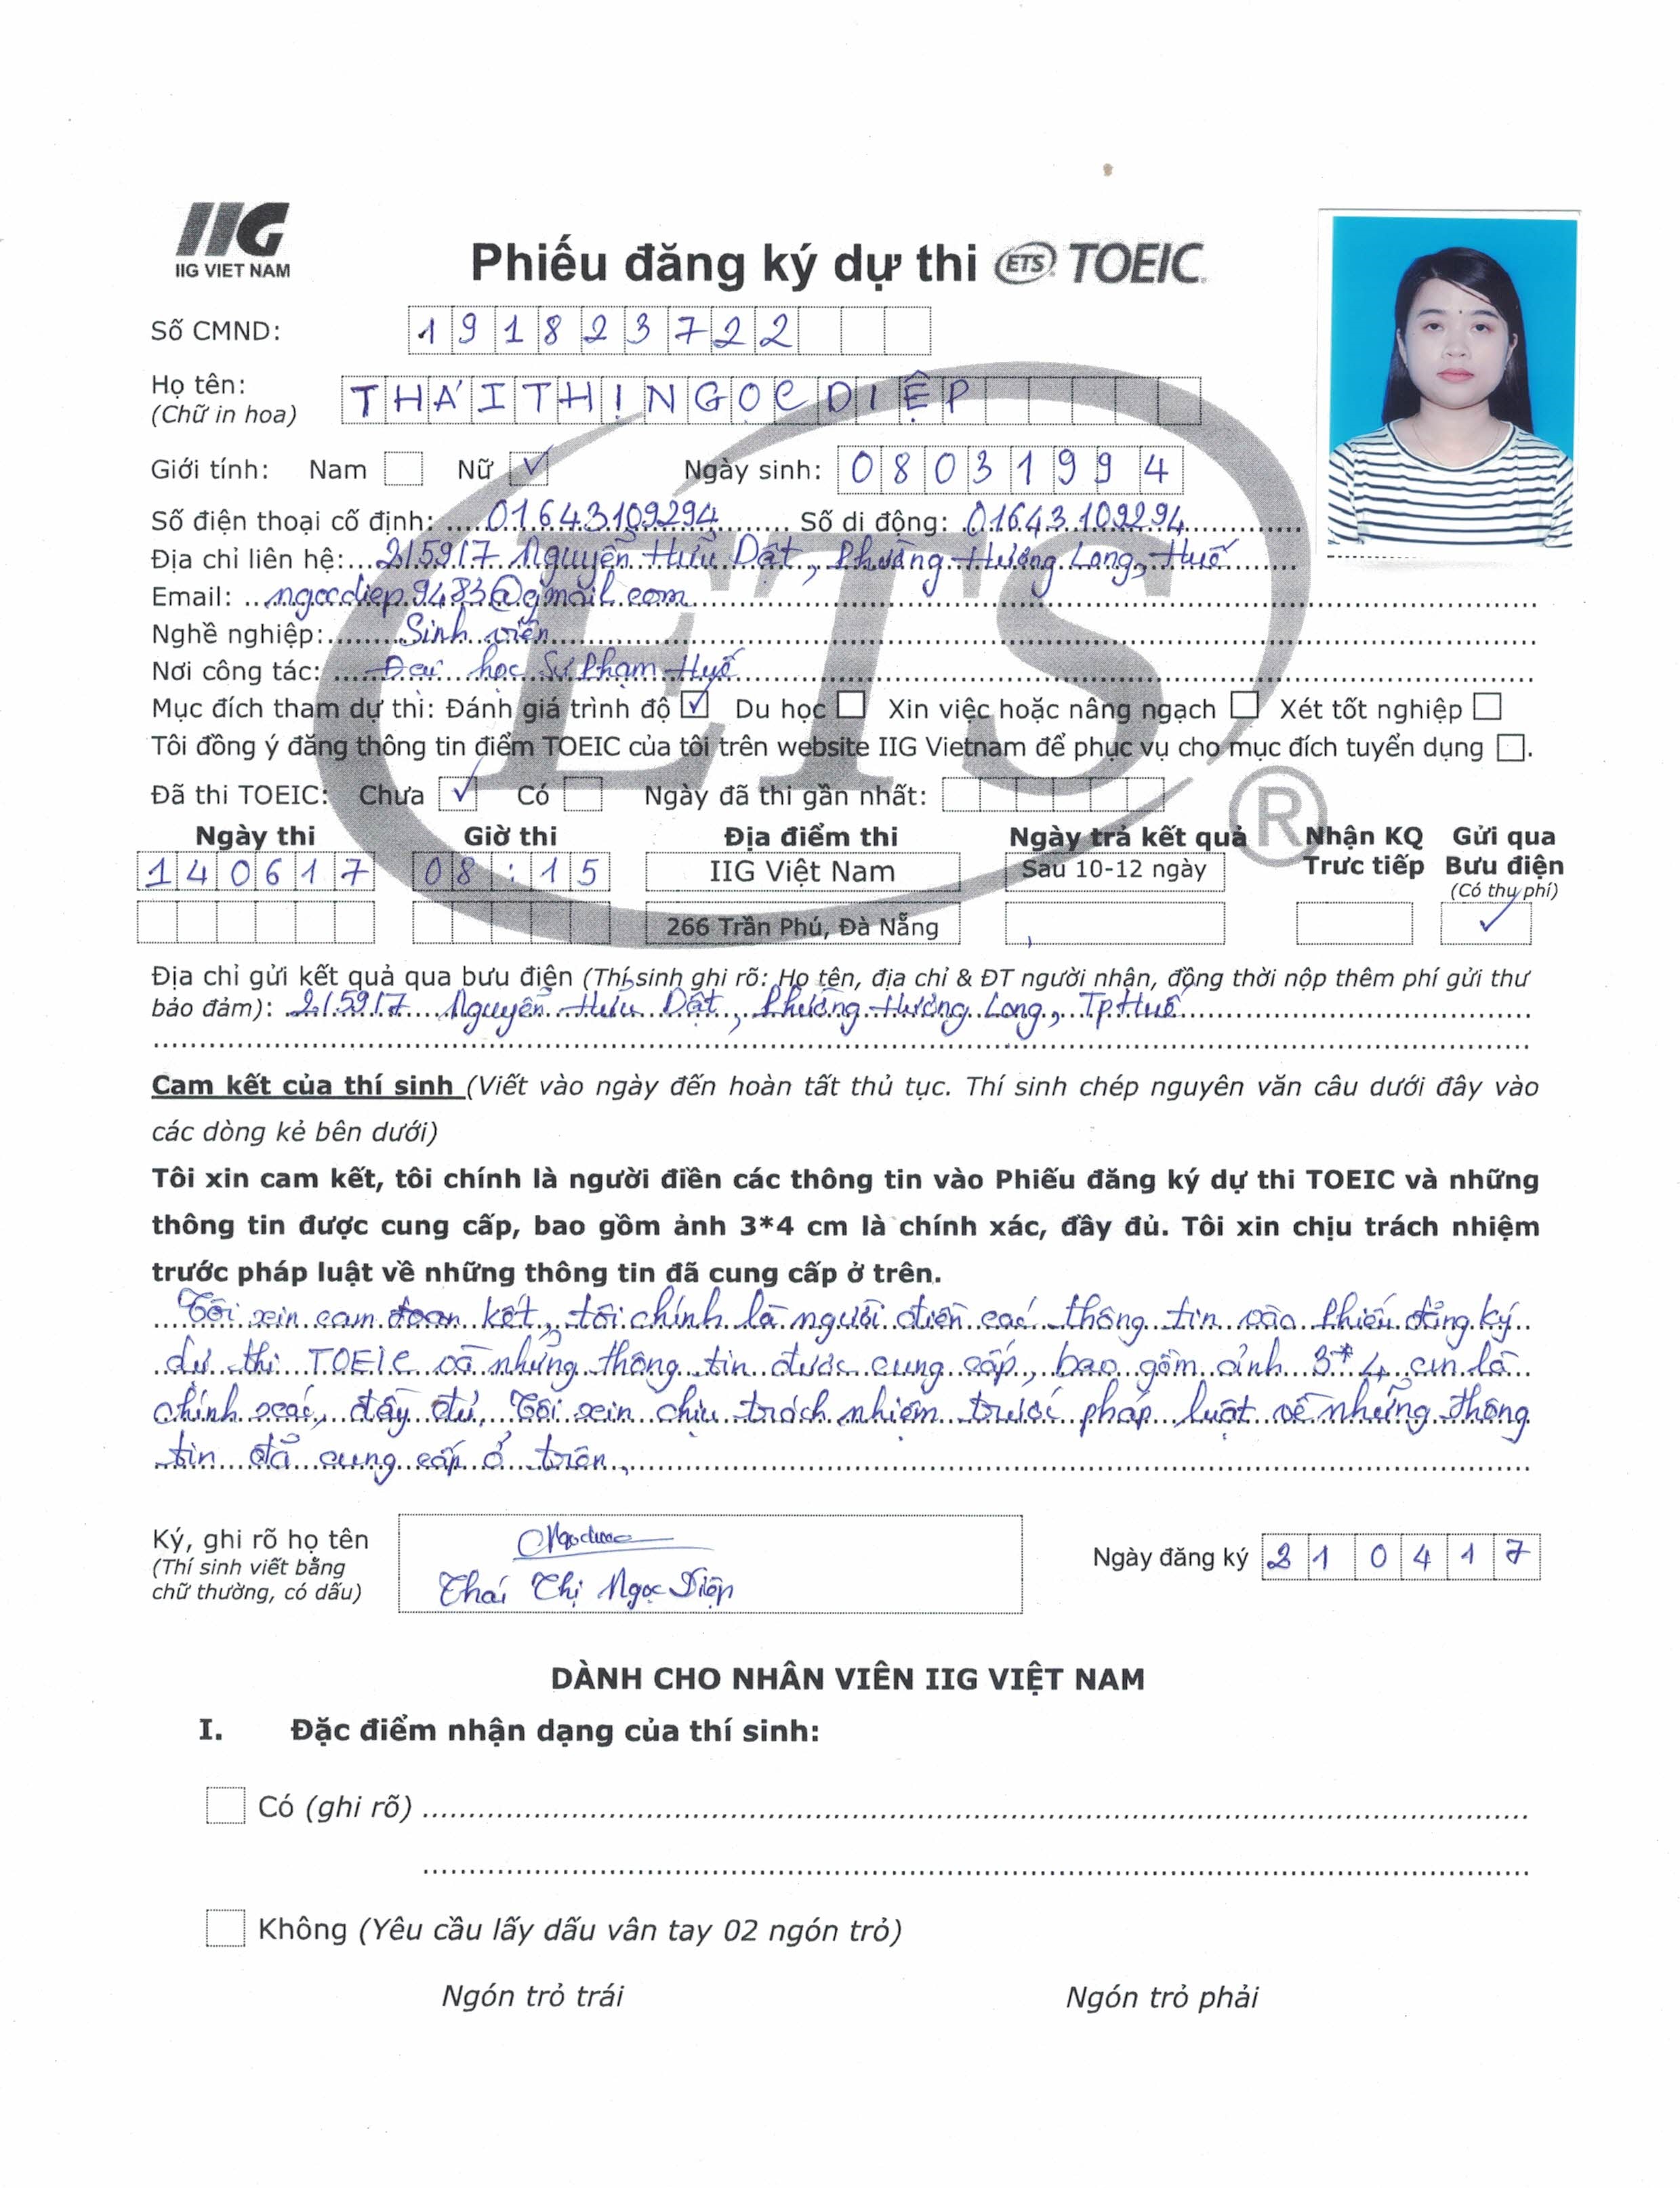 IIG
IIG VIET NAM
Phiếu đăng ký dự thi ETS TOEIC
Số CMND: 191823722
Họ tên: THÁI THỊ NGỌC DIỆP
(Chữ in hoa)
Giới tính: Nam Nữ ✓ Ngày sinh: 08031994
Số điện thoại cố định: 01643109294 Số di động: 01643109294
Địa chỉ liên hệ: Nguyễn Hữu Dật, Phường Hương Long, Huế
Email: ngocdiep9483@gmail.com
Nghề nghiệp: Sinh viên
Nơi công tác: Đại học Sư Phạm Huế
Mục đích tham dự thi: Đánh giá trình độ ✓ Du học Xin việc hoặc nâng ngạch Xét tốt nghiệp
Tôi đồng ý đăng thông tin điểm TOEIC của tôi trên website IIG Vietnam để phục vụ cho mục đích tuyển dụng .
Đã thi TOEIC: Chưa ✓ Có Ngày đã thi gần nhất:
Ngày thi Giờ thi Địa điểm thi Ngày trả kết quả Nhận KQ Trực tiếp Gửi qua Bưu điện
(Có thu phí)
140617 08:15 IIG Việt Nam Sau 10-12 ngày
266 Trần Phú, Đà Nẵng ✓
Địa chỉ gửi kết quả qua bưu điện (Thí sinh ghi rõ: Họ tên, địa chỉ & ĐT người nhận, đồng thời nộp thêm phí gửi thư
bảo đảm): Nguyễn Hữu Dật, Phường Hương Long, Tp Huế
Cam kết của thí sinh (Viết vào ngày đến hoàn tất thủ tục. Thí sinh chép nguyên văn câu dưới đây vào
các dòng kẻ bên dưới)
Tôi xin cam kết, tôi chính là người điền các thông tin vào Phiếu đăng ký dự thi TOEIC và những
thông tin được cung cấp, bao gồm ảnh 3*4 cm là chính xác, đầy đủ. Tôi xin chịu trách nhiệm
trước pháp luật về những thông tin đã cung cấp ở trên.
Tôi xin cam đoan kết, tôi chính là người điền các thông tin vào Phiếu đăng ký
dự thi TOEIC và những thông tin được cung cấp, bao gồm ảnh 3*4 cm là
chính xác, đầy đủ. Tôi xin chịu trách nhiệm trước pháp luật về những thông
tin đã cung cấp ở trên.
Ký, ghi rõ họ tên
(Thí sinh viết bằng
chữ thường, có dấu)
Thái Thị Ngọc Diệp
Ngày đăng ký 210417
DÀNH CHO NHÂN VIÊN IIG VIỆT NAM
I. Đặc điểm nhận dạng của thí sinh:
Có (ghi rõ)
Không (Yêu cầu lấy dấu vân tay 02 ngón trỏ)
Ngón trỏ trái Ngón trỏ phải
ETS ®